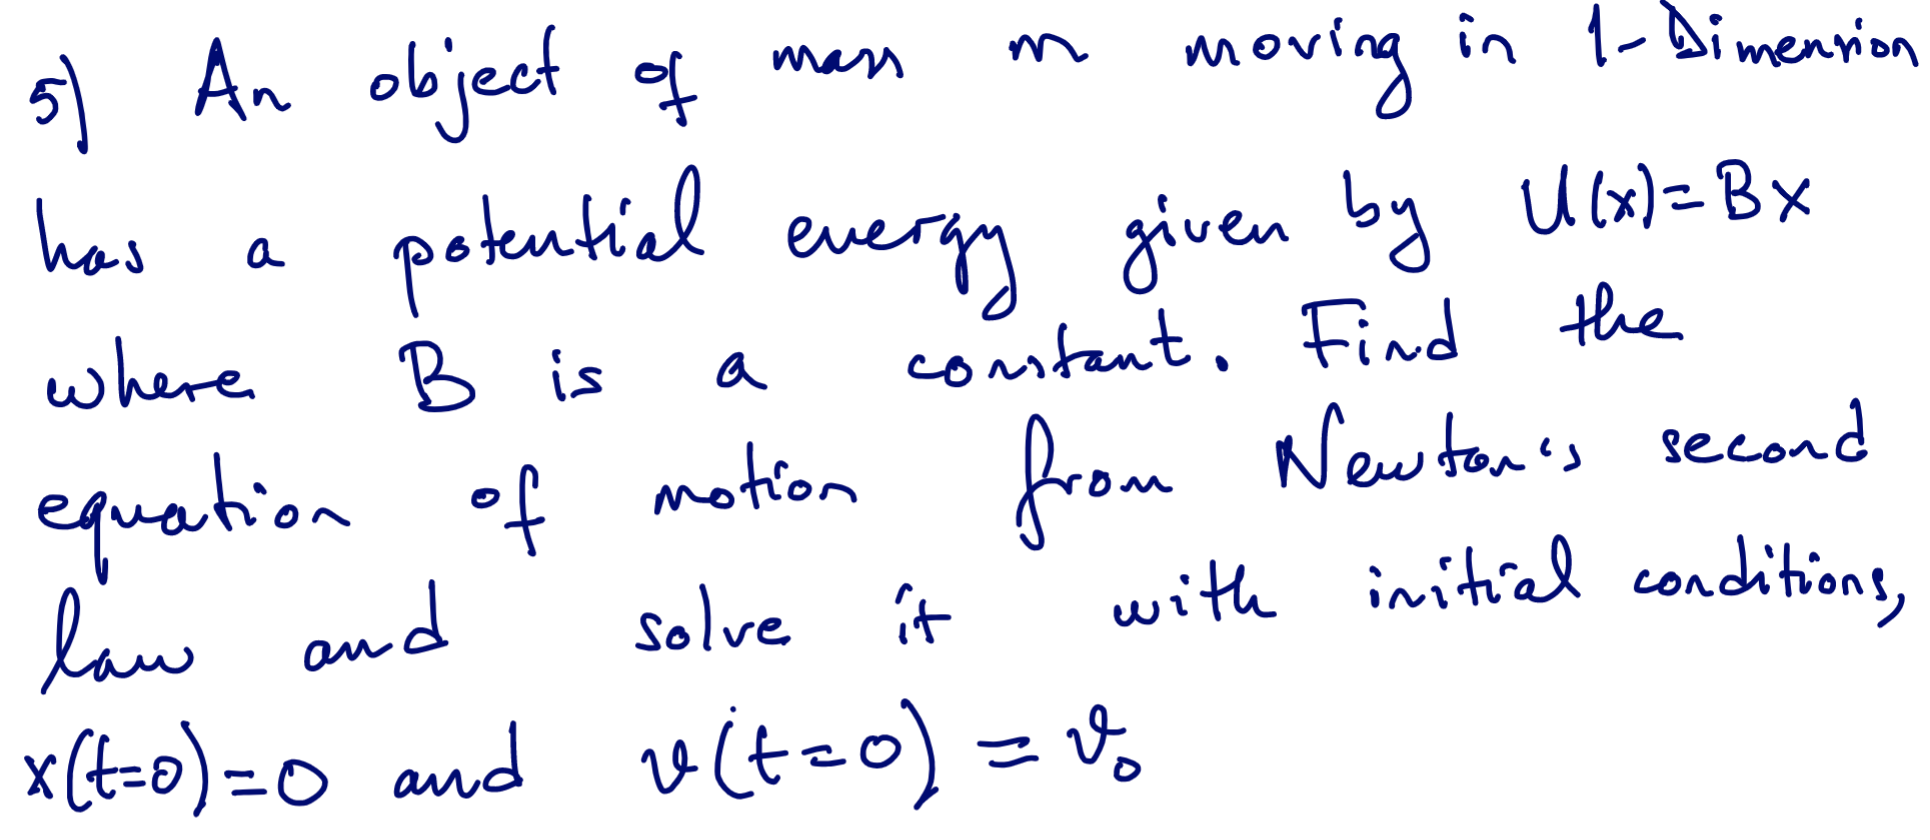 5) An object of mass m moving in 1-Dimension
has a potential energy given by U(x)=Bx
where B is a constant. Find the
equation of motion from Newton's second
law and solve it with initial conditions,
x(t=0)=0 and v(t=0)=v₀